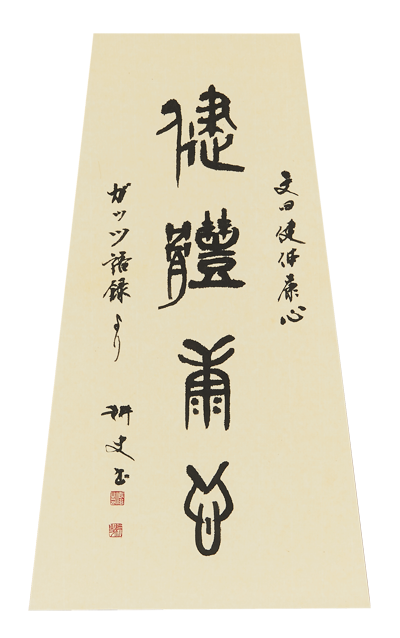 文曰健体康心
健體康心
ガッツ語録より
耕史